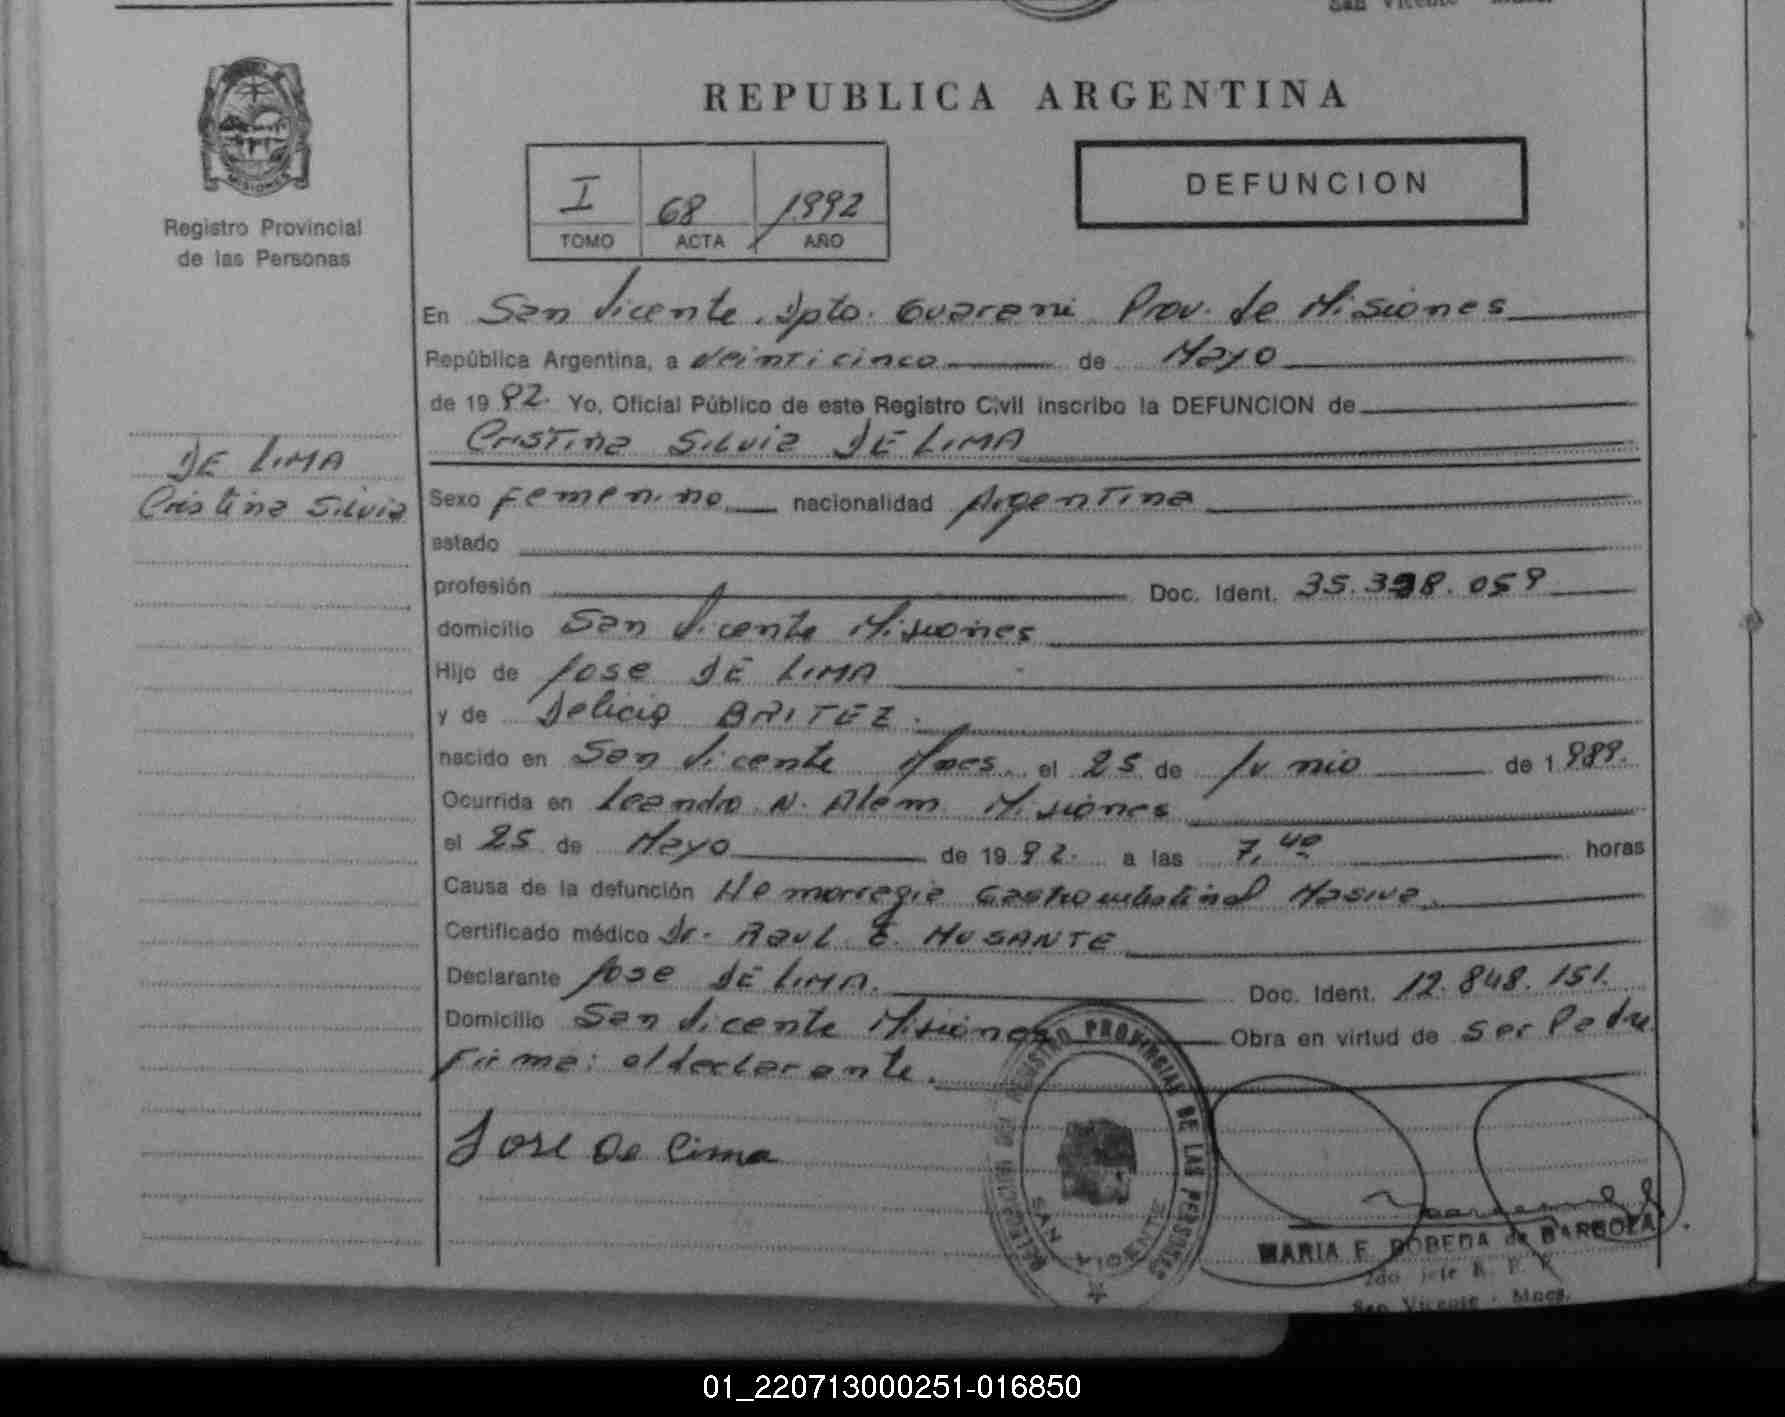 San Vicente
REPUBLICA ARGENTINA
MISIONES
Registro Provincial
de las Personas
I 68 1992
TOMO ACTA AÑO
DEFUNCION
En San Vicente, Dpto. Guarani Prov. de Misiones
República Argentina, a veinticinco de Mayo
de 1992. Yo, Oficial Público de este Registro Civil inscribo la DEFUNCION de
Cristina Silvia DE LIMA
DE LIMA
Cristina Silvia
Sexo Femenino nacionalidad Argentina
estado
profesión Doc. Ident. 35.398.059
domicilio San Vicente Misiones
Hijo de Jose DE LIMA
y de Delicia BRITEZ.
nacido en San Vicente Mnes. el 25 de Junio de 1989.
Ocurrida en Leandro N. Alem Misiones
el 25 de Mayo de 1992. a las 7,40 horas
Causa de la defunción Hemorregia Gastrointestinal Masiva.
Certificado médico Dr. Raul E. MUSANTE
Declarante Jose DE LIMA. Doc. Ident. 12.848.151.
Domicilio San Vicente Misiones Obra en virtud de Ser Padre
Firma: el declarante.
Jose De Lima
REGISTRO PROVINCIAL DE LAS PERSONAS
SAN VICENTE
MARIA F. BOBEDA de BARBOZA
2do Jefe R. P. P.
San Vicente - Mnes.
01_220713000251-016850